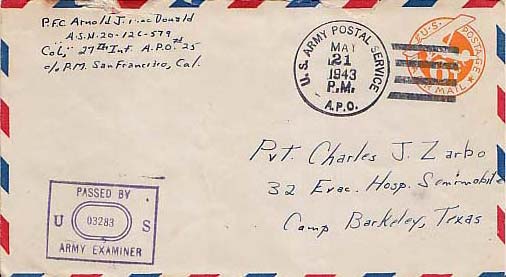 P.F.C Arnold J. MacDonald
A.S.N. 20-126-579
Col, 27th Inf. A.P.O. 25
c/o P.M. San Francisco, Cal.
U.S. ARMY POSTAL SERVICE
MAY
21
1943
P.M.
A.P.O.
U.S. POSTAGE
6¢
AIR MAIL
Pvt. Charles J. Zarbo
32 Evac. Hosp. Semimobile
Camp Barkeley, Texas
PASSED BY
U 03283 S
ARMY EXAMINER